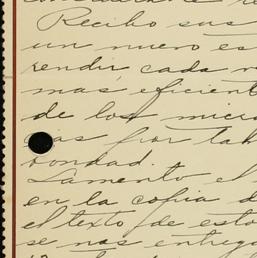 Recibo sus
un nuevo es
rendir cada v
más eficient
de los micro
cias por tah
bondad.
Lamento el
en la copia d
el texto de esto
se nos entreg